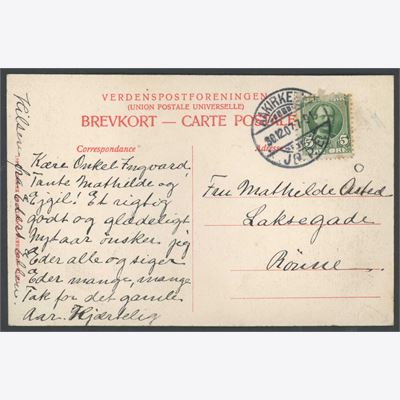 VERDENSPOSTFORENINGEN
(UNION POSTALE UNIVERSELLE)
BREVKORT — CARTE POSTALE
Correspondance
Kære Onkel Ingvard,
Tante Mathilde og
Eggil! Et rigtig
godt og glædeligt
Nytaar ønsker jeg
Eder alle og siger
Eder mange, mange
Tak for det gamle
Aar. Hjærtelig
Hilsen fra
Adresse
Fru Mathilde Åsted
Laksegade
Rönne.
AAKIRKEBY
30.12.07
5 ØRE